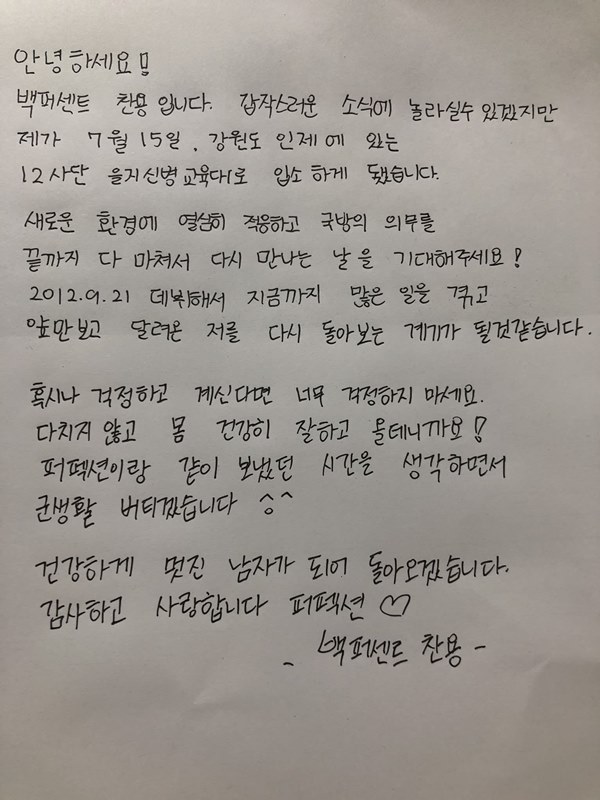 안녕하세요!
백퍼센트 찬용입니다. 갑작스러운 소식에 놀라실수 있겠지만
제가 7월 15일, 강원도 인제에 있는
12사단 을지신병교육대로 입소하게 됐습니다.
새로운 환경에 열심히 적응하고 국방의 의무를
끝까지 다 마쳐서 다시 만나는 날을 기대해주세요!
2012.9.21 데뷔해서 지금까지 많은 일을 겪고
앞만보고 달려온 저를 다시 돌아보는 계기가 될것같습니다.
혹시나 걱정하고 계신다면 너무 걱정하지 마세요.
다치지 않고 몸 건강히 잘하고 올테니까요!
퍼펙션이랑 같이 보냈던 시간을 생각하면서
군생활 버티겠습니다 ^^
건강하게 멋진 남자가 되어 돌아오겠습니다.
감사하고 사랑합니다 퍼펙션 ♡
- 백퍼센트 찬용 -